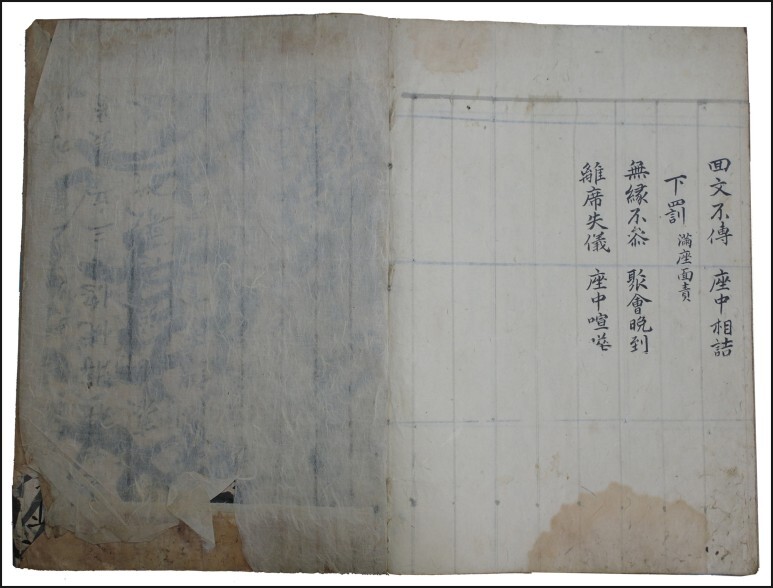 回文不傳 座中相詰
下罰 滿座面責
無緣不參 聚會晩到
離席失儀 座中喧